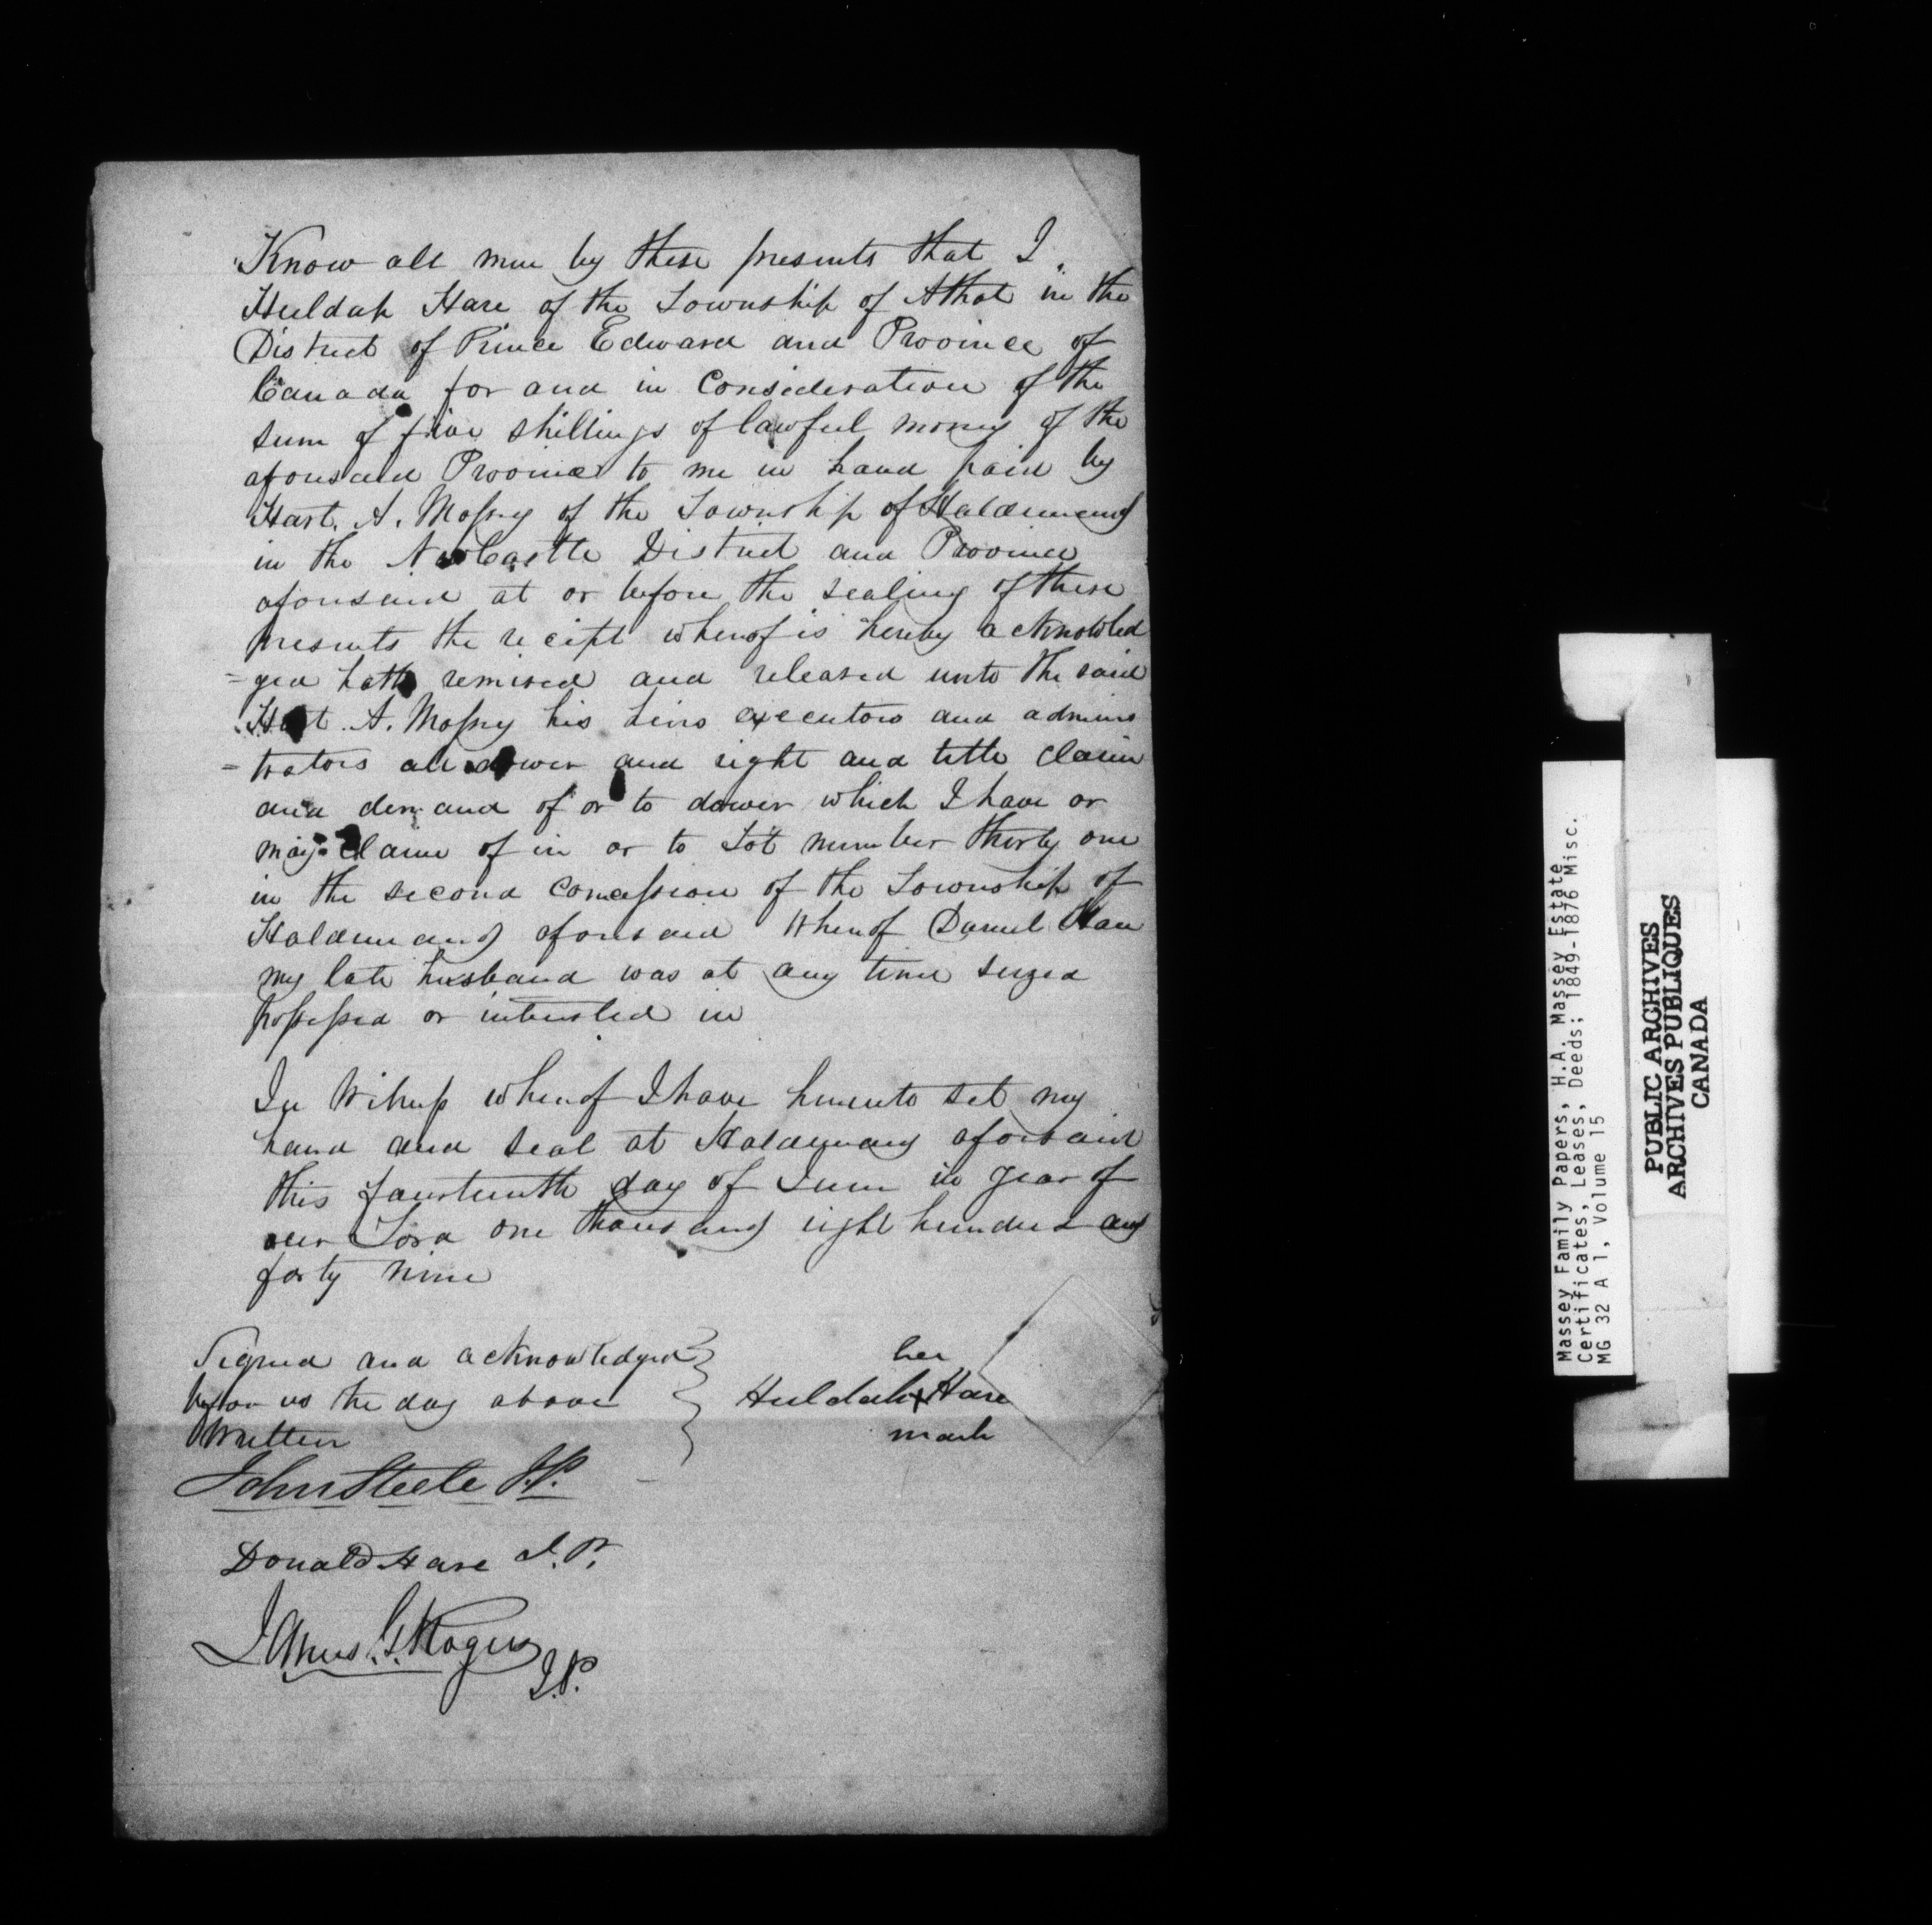 Know all men by these presents that I
Huldah Hare of the Township of Athol in the
District of Prince Edward and Province of
Canada for and in Consideration of the
sum of five shillings of lawful money of the
aforesaid Province to me in hand paid by
Hart. A. Massey of the Township of Haldimand
in the NewCastle District and Province
aforesaid at or before the sealing of these
presents the receipt whereof is hereby acknowled
=ged hath remised and released unto the said
Hart A. Massey his heirs executors and adminis
=trators all dower and right and title claim
and demand of or to dower which I have or
may claim of in or to Lot number thirty one
in the second concession of the Township of
Haldimand aforesaid whereof Daniel Hare
my late husband was at any time seized
possessed or interested in
In Witness whereof I have hereunto set my
hand and seal at Haldimand aforsaid
this fourteenth day of June in year of
our Lord one thousand eight hundred and
forty nine
Signed and acknowledged
before us the day above
Written
her
Huldah X Hare
mark
John Steele J.P.
Donald Hare J.P.
James G. Rogers
J.P.
Massey Family Papers, H.A. Massey Estate
Certificates, Leases, Deeds; 1849-1876 Misc.
MG 32 A 1, Volume 15
PUBLIC ARCHIVES
ARCHIVES PUBLIQUES
CANADA